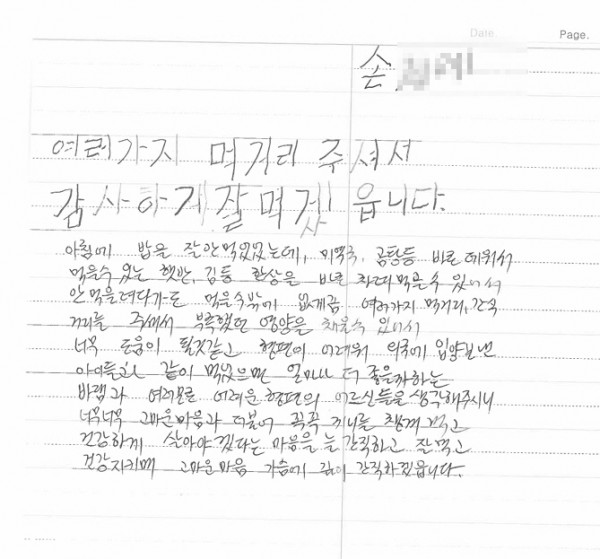 Date. Page.
손
여러가지 먹거리 주셔서
감사하게 잘 먹겠읍니다.
사
아침에 밥을 잘 안먹었었는데, 미역국, 곰탕등 바로 데워서
먹을수 있는 햇반, 김 등 한상을 바로 차려먹을수 있어서
안먹을려다가도 먹을수밖에 없게끔 여러가지 먹거리, 간식
거리를 주셔서 부족했던 영양을 채울수 있어서
너무 도움이 될것같고 형편이 어려워 외국에 입양보낸
아이들과도 같이 먹었으면 얼마나 더 좋을까하는
바램과 여러모로 어려운 형편의 어르신들을 생각해주시니
너무너무 고마운마음과 더불어 꼭꼭 끼니를 챙겨 먹고
건강하게 살아야겠다는 마음을 늘 간직하고 잘먹고
건강지키며 고마운마음 가슴에 깊이 간직하겠읍니다.